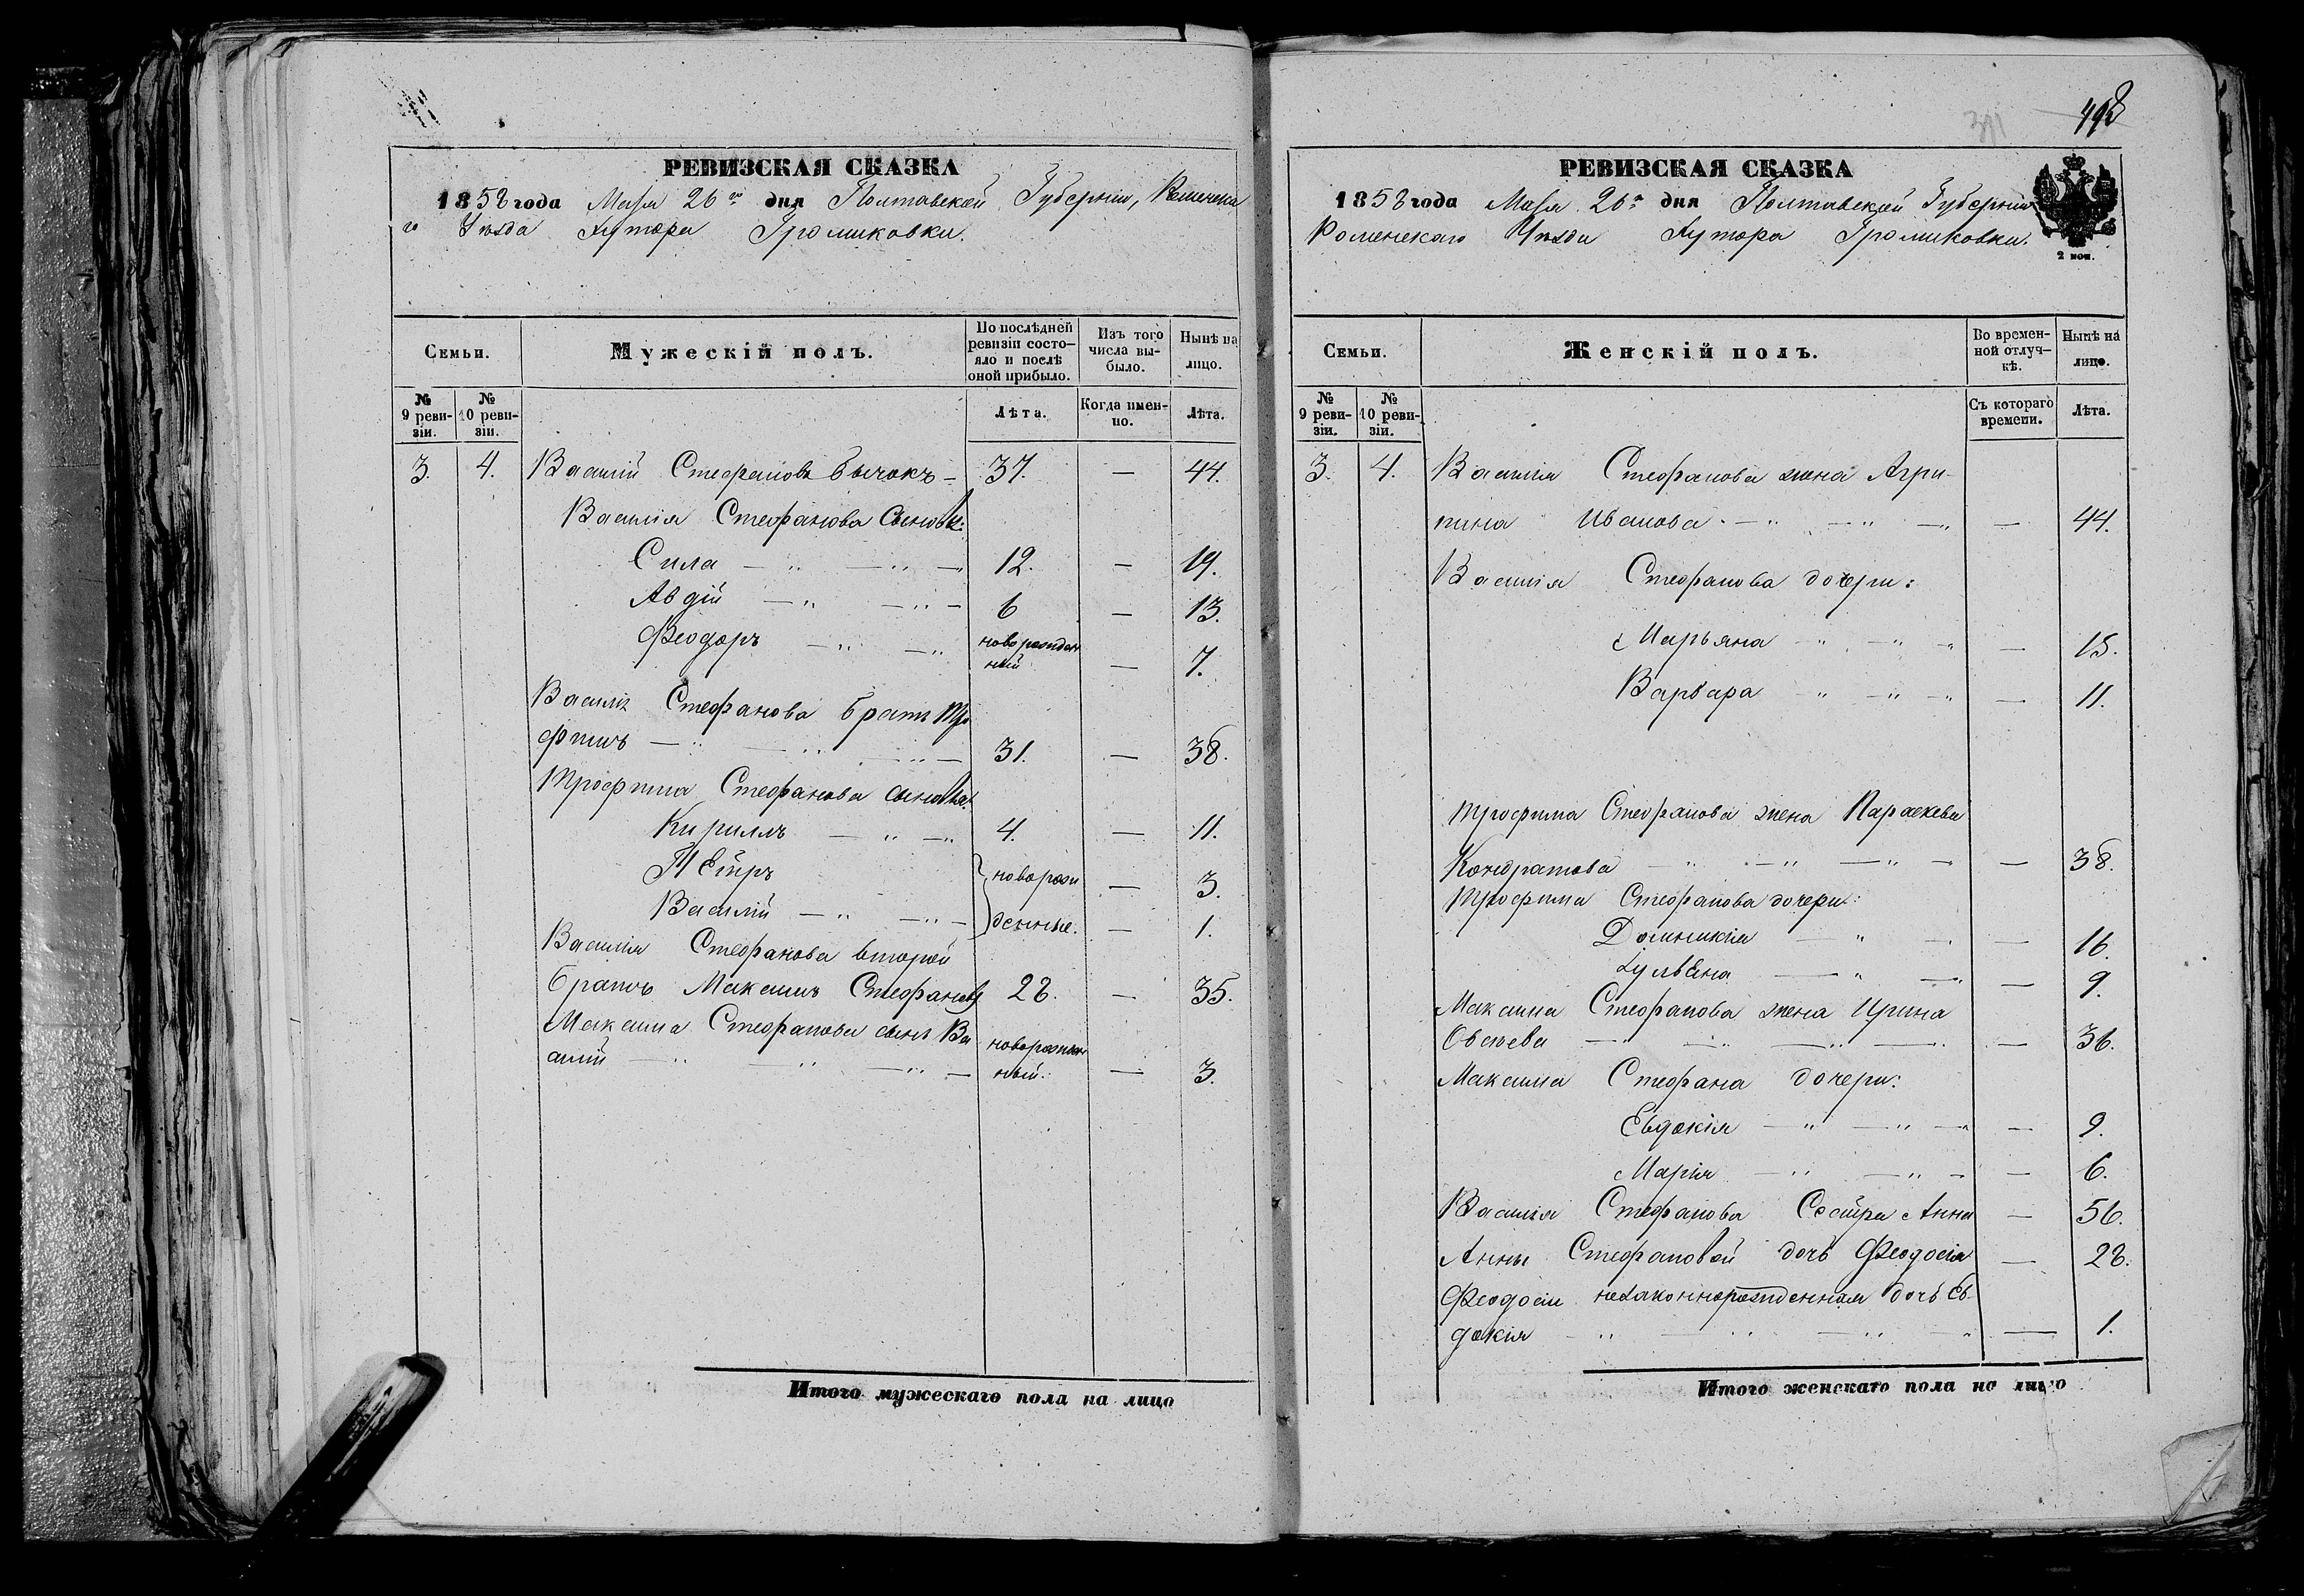 РЕВИЗСКАЯ СКАЗКА
1858 года Мая 26го дня Полтавской Губерніи, Роменска
го Уѣзда Хутора Громиковки.
Семьи.
Мужескій полъ.
По послѣдней ревизіи состо-
яло и послѣ оной прибыло.
Изъ того числа вы-
было.
Нынѣ на лицо.
№ 9 реви-
зіи.
№ 10 реви-
зіи.
Лѣта.
Когда имен-
но.
Лѣта.
3. 4. Василій Стефановъ Бычокъ — 37. — 44.
Василія Стефанова сыновья:
Сила — " — " — 12. — 19.
Авдій — " — " — 6 — 13.
Феодоръ — " — " новорожден
ный — 7.
Василія Стефанова братъ Тро
фимъ — " — " — " — 31. — 38.
Трофима Стефанова сыновья:
Кириллъ — " — " 4. — 11.
Петръ } новорож — 3.
Василій — " — " — } денные. — 1.
Василія Стефанова второй
братъ Максимъ Стефановъ 28. — 35.
Максима Стефанова сынъ Ва новорожден
силій — " — " — " — ный. — 3.
Итого мужескаго пола на лицо
498
РЕВИЗСКАЯ СКАЗКА
1858 года Мая 26го дня Полтавской Губерніи
Роменскаго Уѣзда Хутора Громиковки.
2 коп.
Семьи.
Женскій полъ.
Во времен-
ной отлуч-
кѣ.
Нынѣ на лицо.
№ 9 реви-
зіи.
№ 10 реви-
зіи.
Съ котораго времени.
Лѣта.
3. 4. Василія Стефанова жена Агри-
пина Иванова. — " — " — " — 44.
Василія Стефанова дочери:
Марьяна — " — " — " — 15.
Варвара — " — " — " — 11.
Трофима Стефанова жена Параскева
Кондратова — " — " — " — — 38.
Трофима Стефанова дочери:
Домникія — " — — 16.
Ульяна — " — — 9.
Максима Стефанова жена Ирина
Овсѣева — " — " — " — — 36.
Максима Стефана дочери:
Евдокія — " — " — " — 9.
Марія — " — " — — 6.
Василія Стефанова Сестра Анна — 56.
Анны Стефановой дочь Феодосія — 28.
Феодосіи незаконнорожденная дочь Ев-
докія — " — " — " — 1.
Итого женскаго пола на лицо